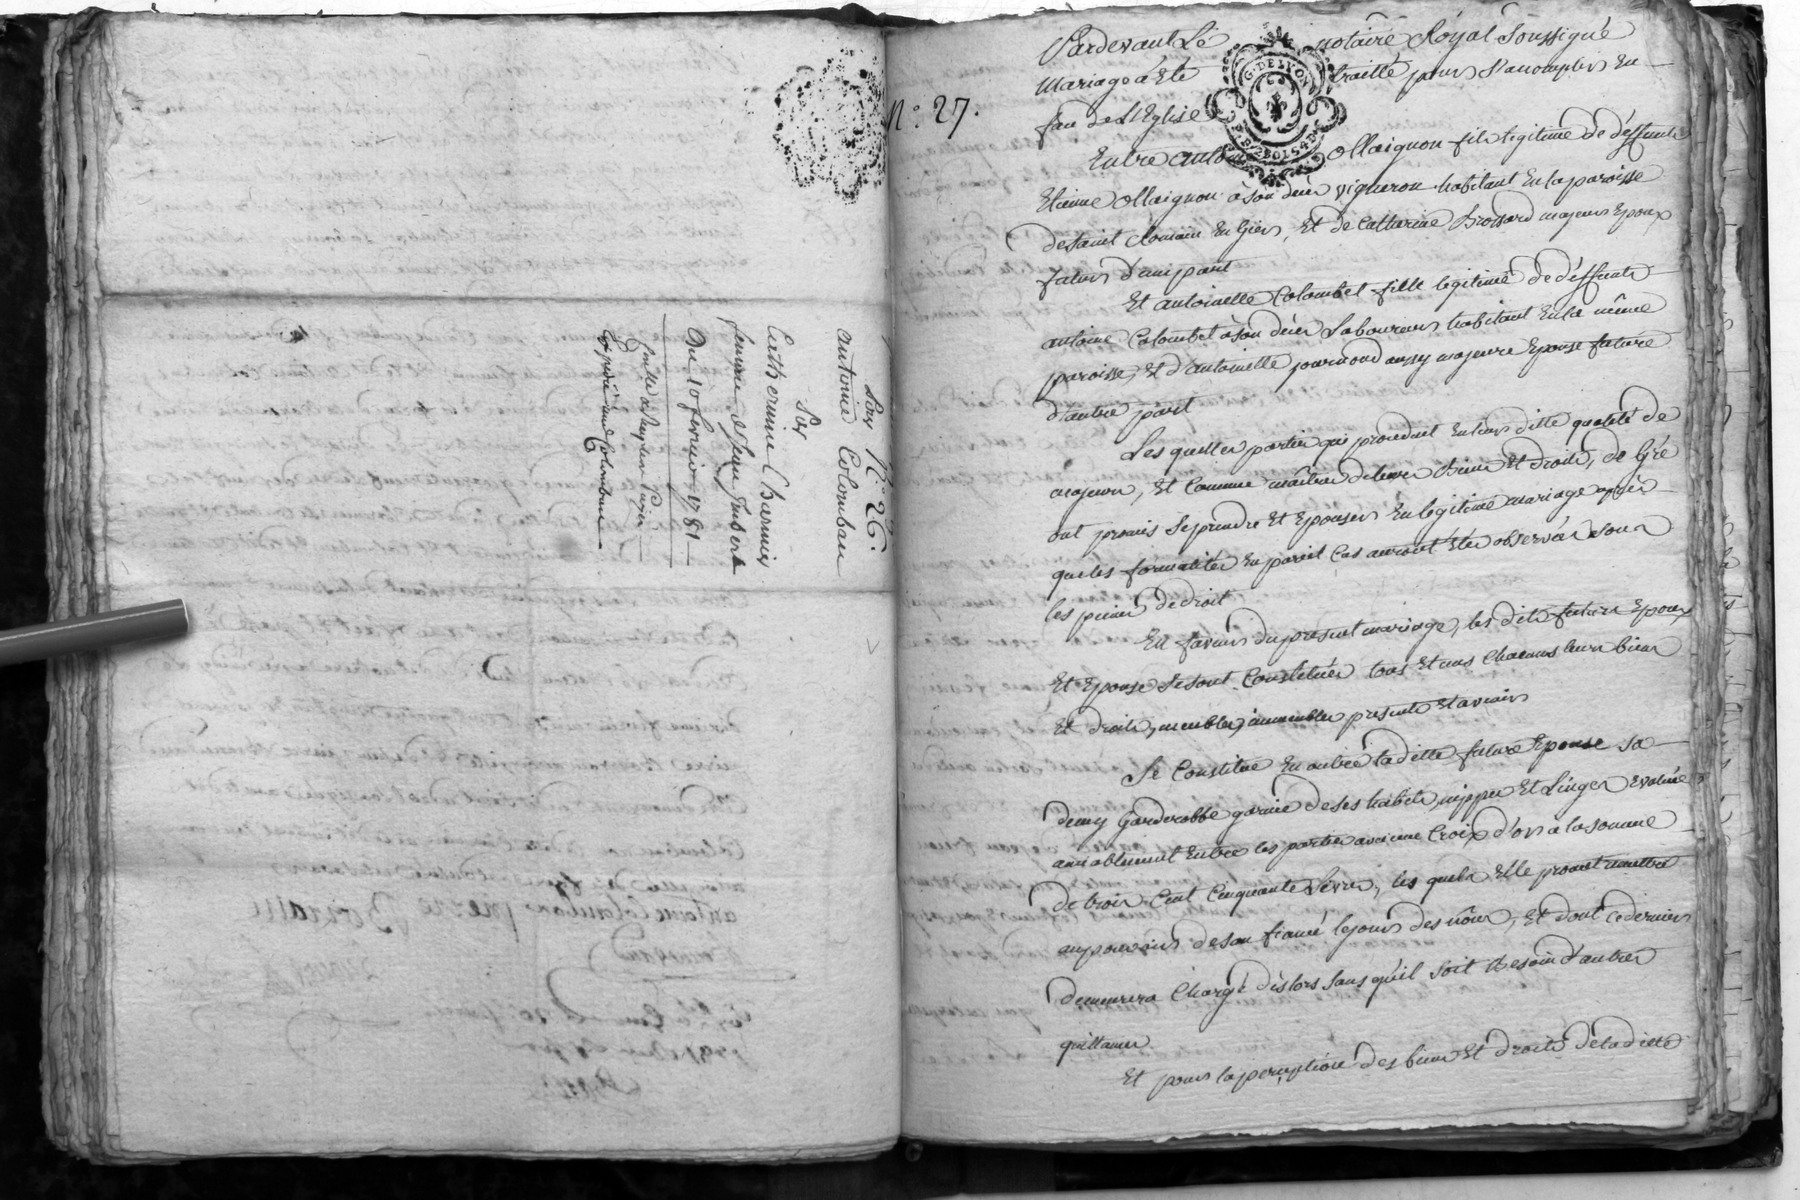 N.° 26.
antoine Colomban
Catherinne Charmier
femme d'Jean Imbert
Du 10 fevrier 1781
N.° 27.
Pardevant Le notaire Royal Soussigné
Mariage a Eté traitté pour S'accomplir En
face de L'Eglise
G. DE LYON
Entre antoine Ollaignon fils legitime de deffunt
Etienne Ollaignon a son deces vigneron habitant En la paroisse
de saint Romain En Giers, Et de Catherine Brossard majeurs Epoux
futur d'une part
Et antoinette Colombet fille legitime de deffunt
antoine Colombet a son deces Laboureur habitant En la même
paroisse, Et d'antoinette journoud aussy majeure Epouse future
d'autre part
Les quelles parties qui procedent En leur ditte qualité de
majeurs, Et Comme maîtres de leurs Biens Et droits, de Gré
ont promis Se prendre Et Epouser En legitime mariage après
que les formalités En pareil Cas auront Eté observées sous
les peines de droit
En faveur du present mariage, les dits futurs Epoux
Et Epouse se sont Constitués tous Et uns Chacuns leurs biens
Et droits, meubles, immeubles presents Et avenir
Se Constitue En outre ladette future Epouse sa
demy Garderobbe garnie de ses habits, nippes Et Linges Evalué
amiablement Entre les parties avec une Croix d'or a la somme
de trois Cent Cinquante Livres, les quels Elle promet mettre
au pouvoir de son fiancé le jour des nôces, Et dont ce dernier
demeurera Chargé dès lors sans qu'il soit Besoin d'autres
quittances
Et pour la perception des biens Et droits de ladette